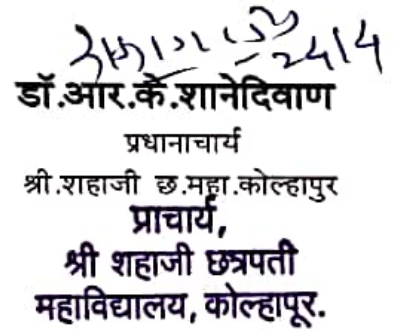 डॉ.आर.के.शानेदिवाण
प्रधानाचार्य
श्री.शहाजी छ.महा.कोल्हापुर
प्राचार्य,
श्री शहाजी छत्रपती
महाविद्यालय, कोल्हापूर.